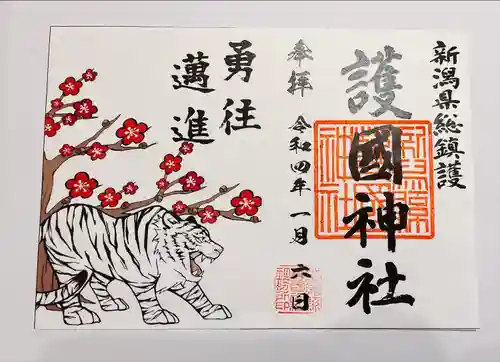 新潟県総鎮護
護國神社
奉拝
令和四年 一月 六日
勇往
邁進